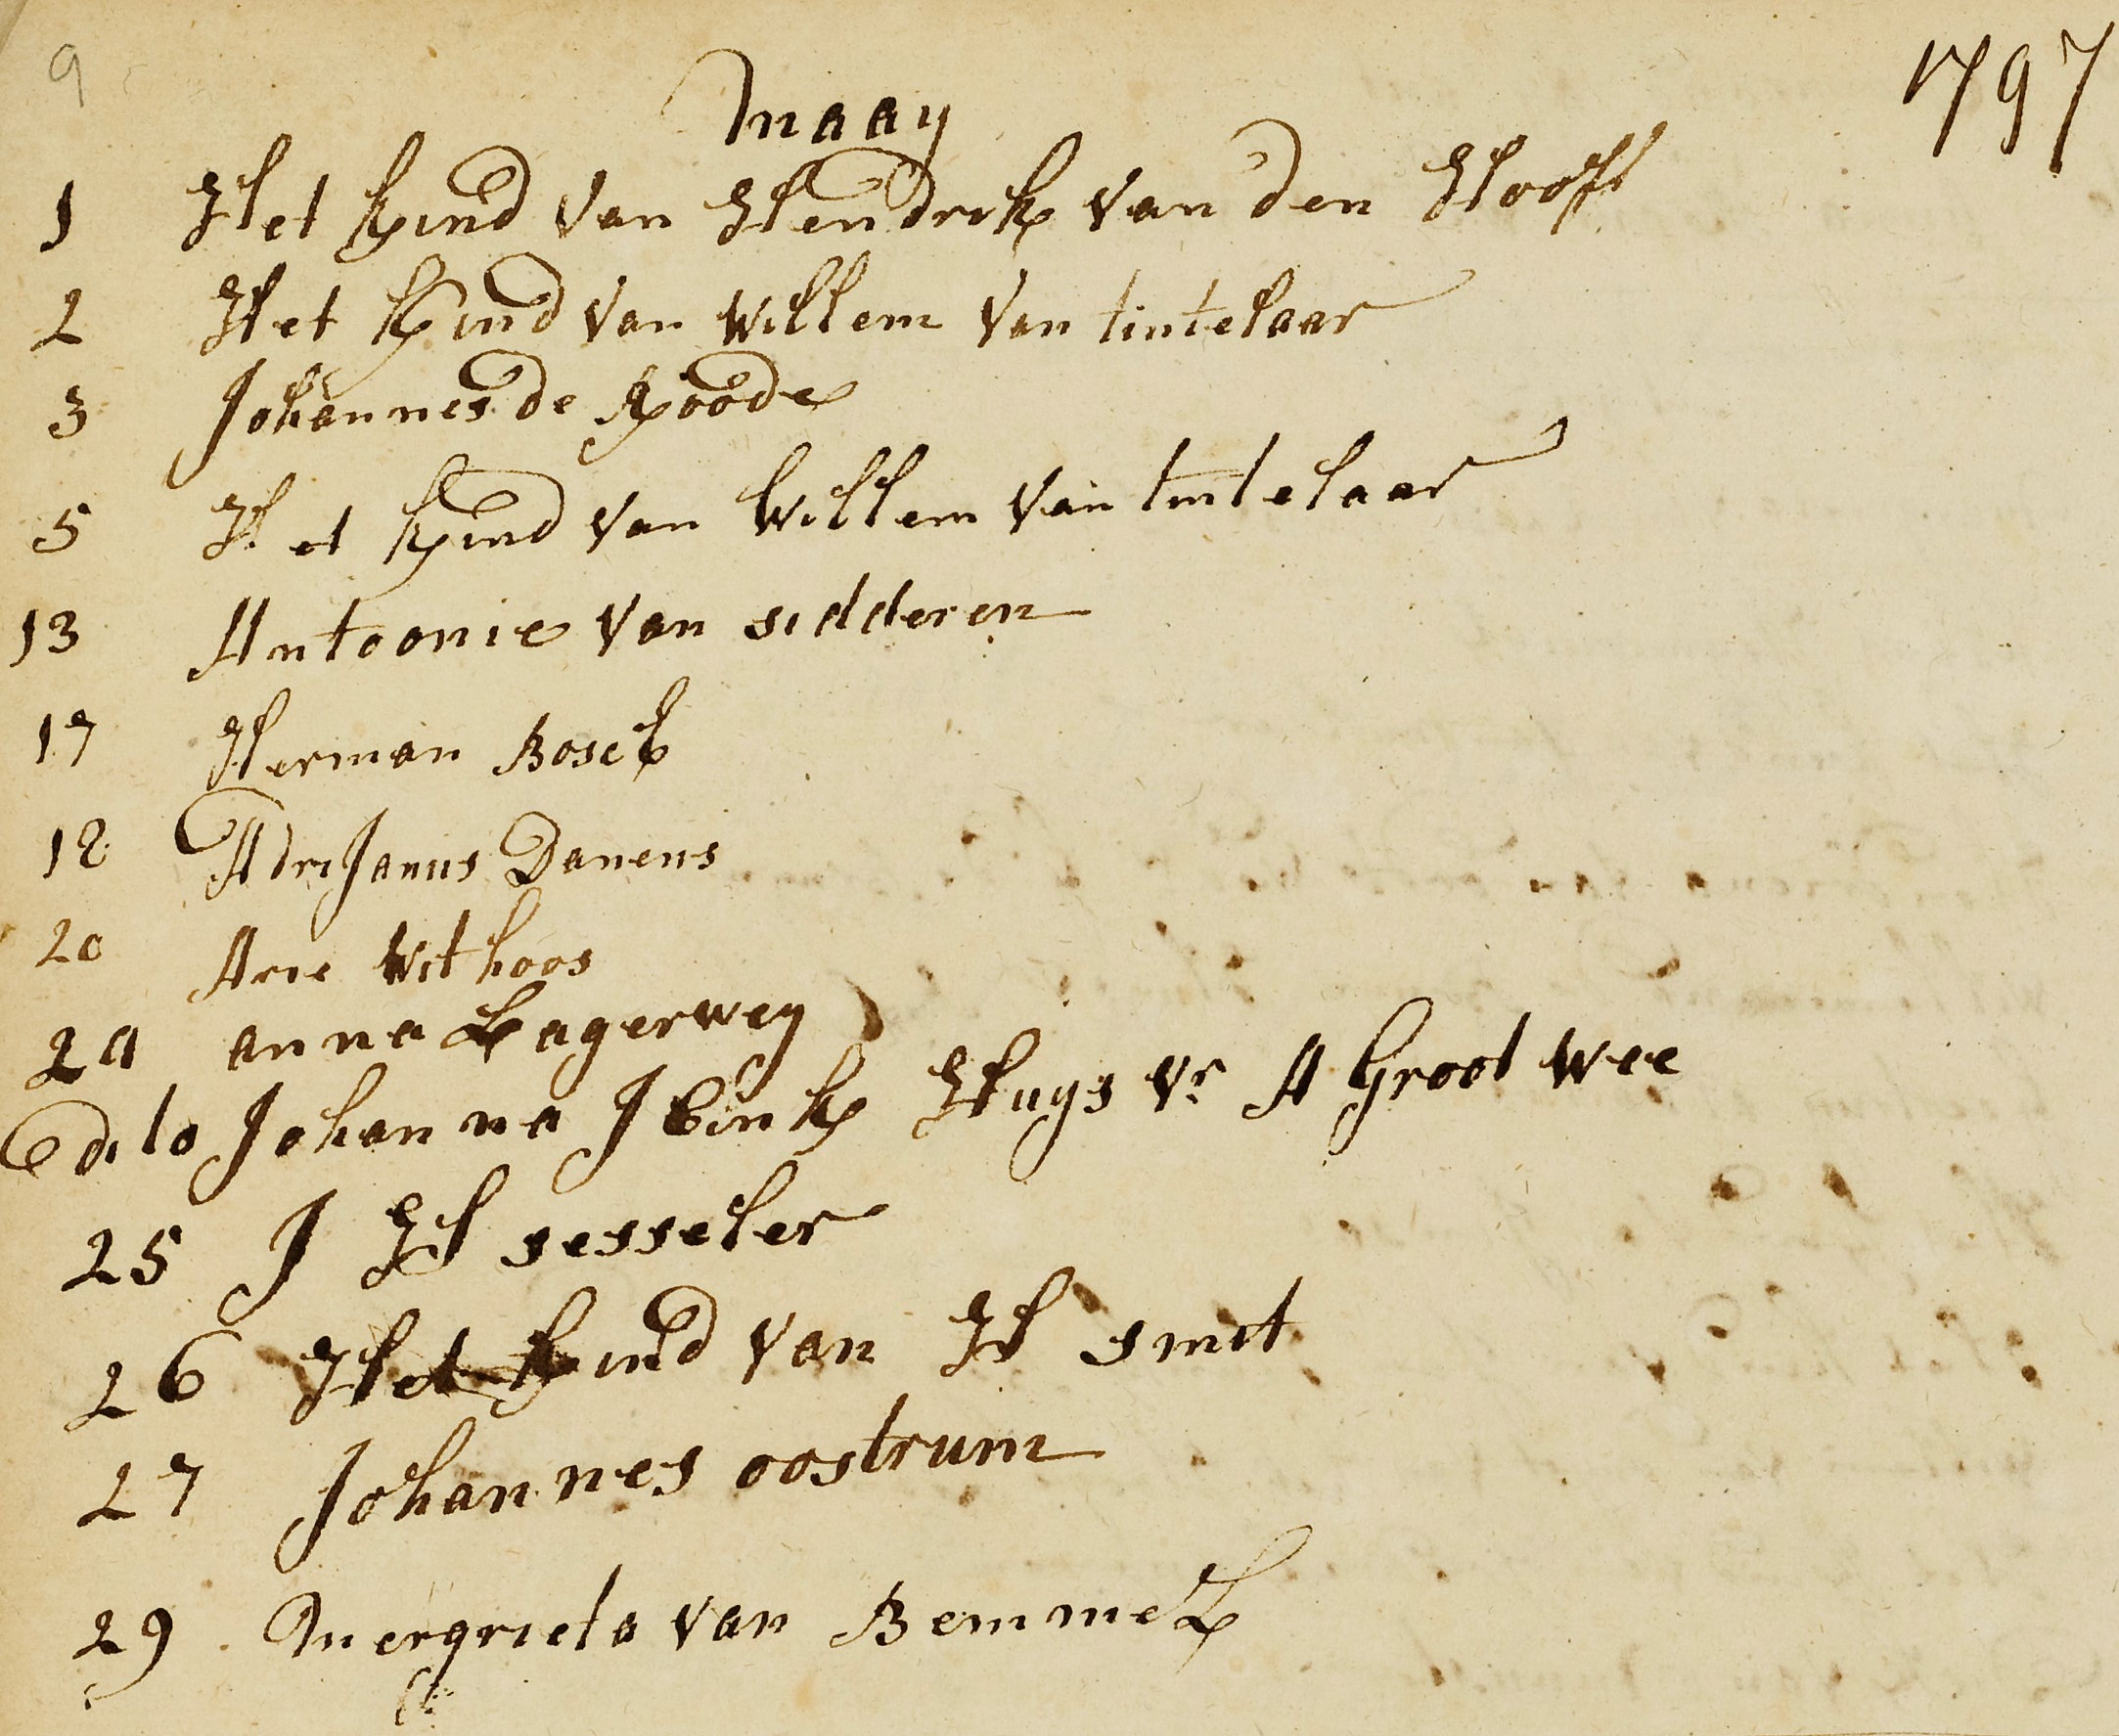 9
1797
maay
1 Het Kind van Hendrik van den Hooft
2 Het Kind van Willem van tintelaar
3 Johannes de Roode
5 Het Kind van Willem van tintelaar
13 Antoonie van sidderen
17 Herman Bosch
18 AdriJanus Danens
20 Arie Withoos
24 anna Lagerwey
dito Johanna Ibink Huys vr A Groot wee
25 J H sesseler
26 Het Kind van H smit
27 Johannes oostrum
29 Mergrieta van Bemmel